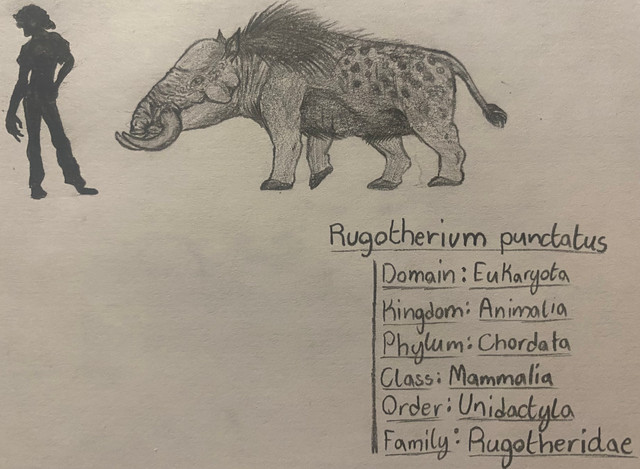 Rugotherium punctatus
Domain: Eukaryota
Kingdom: Animalia
Phylum: Chordata
Class: Mammalia
Order: Unidactyla
Family: Rugotheridae